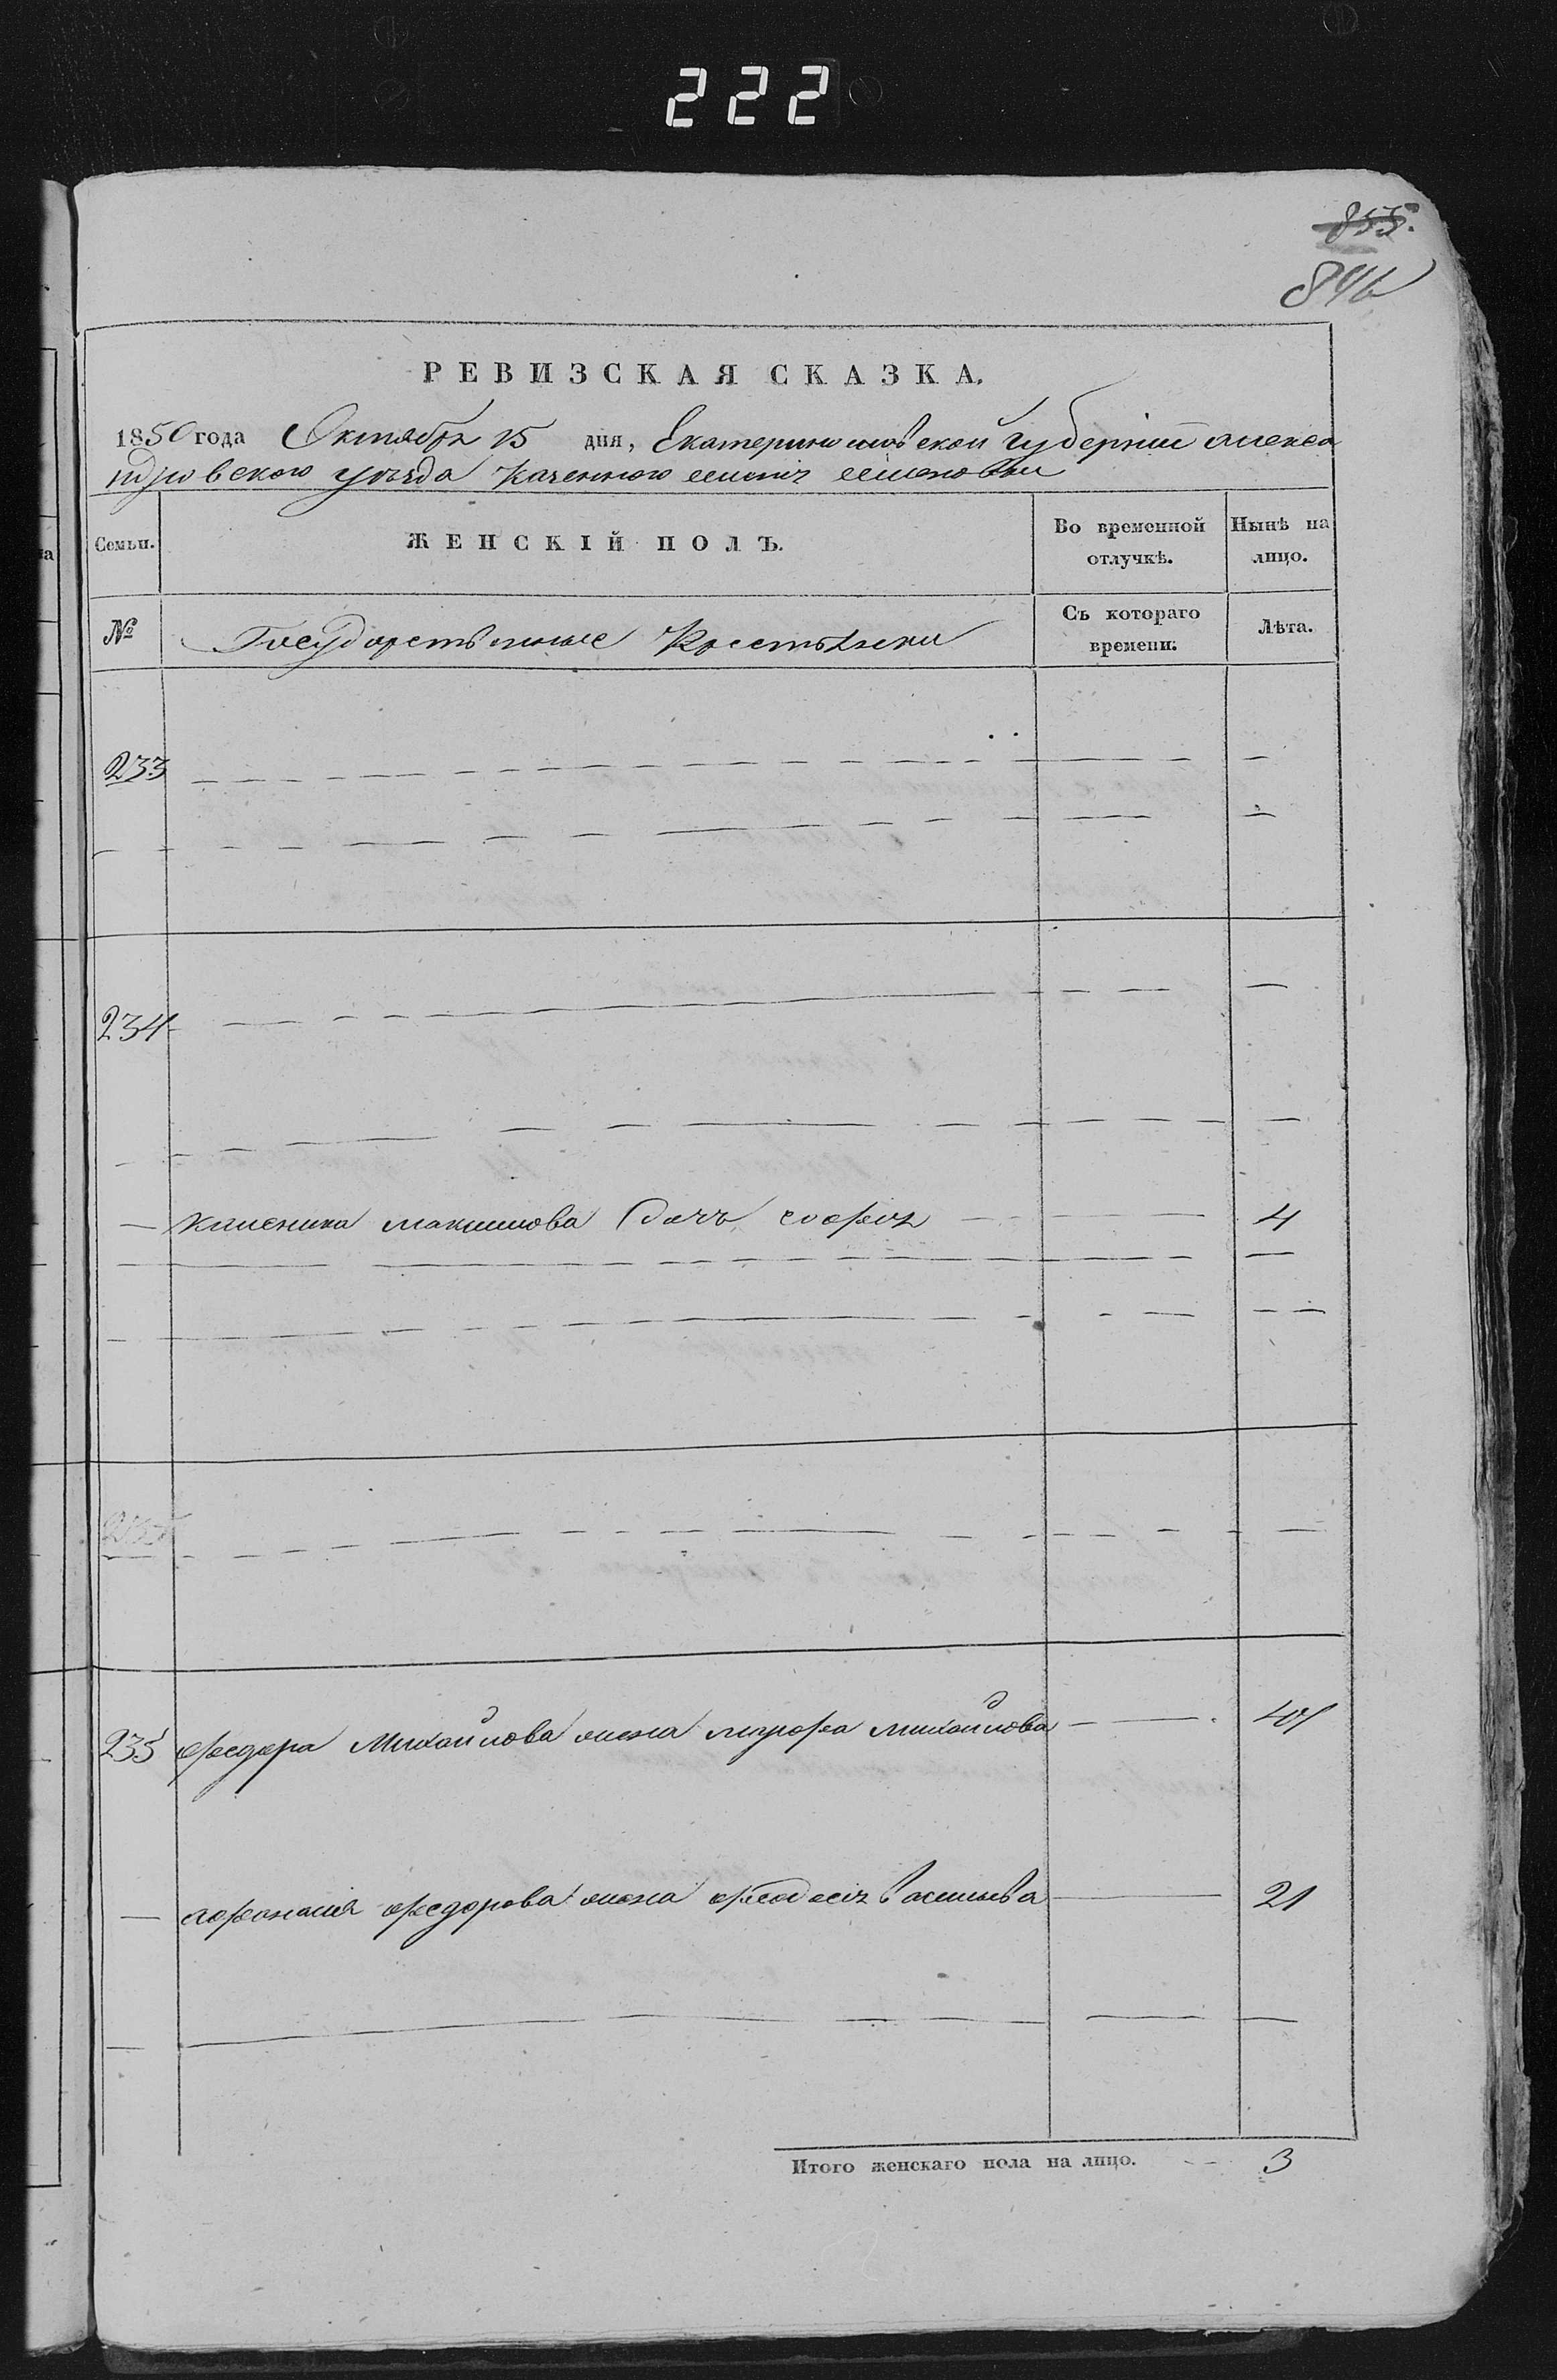 222
855.
846
РЕВИЗСКАЯ СКАЗКА.
1850 года Октября 15 дня, Екатеринославской губернiи алекса
ндровского уезда казенного селенiя семеновки
Семьи. ЖЕНСКІЙ ПОЛЪ. Во временной отлучкѣ. Нынѣ на лицо.
№ Государственные Крестьянки Съ котораго времени. Лѣта.
233
234
— каленика максимова дочь софия — 4
235
235 федора Михайлова жена марфа михайлова — 40
— афонасия федорова жена феодосiя васильева — 21
Итого женскаго пола на лицо. — 3